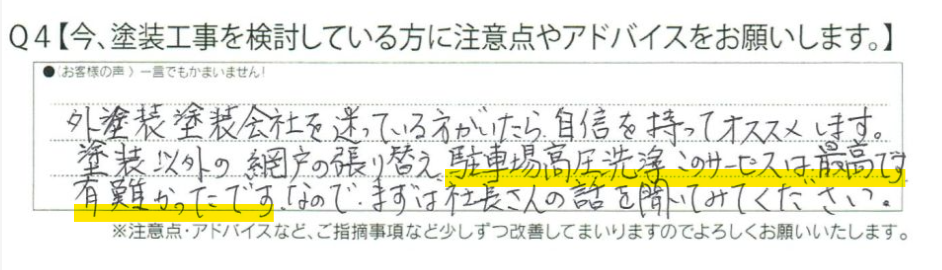 Q4【今、塗装工事を検討している方に注意点やアドバイスをお願いします。】
●(お客様の声)一言でもかまいません!
外塗装塗装会社を迷っている方がいたら、自信を持ってオススメします。
塗装以外の網戸の張り替え、駐車場高圧洗浄このサービスは最高です
有難かったです、なので、まずは社長さんの話を聞いてみてください。
※注意点・アドバイスなど、ご指摘事項など少しずつ改善してまいりますのでよろしくお願いいたします。